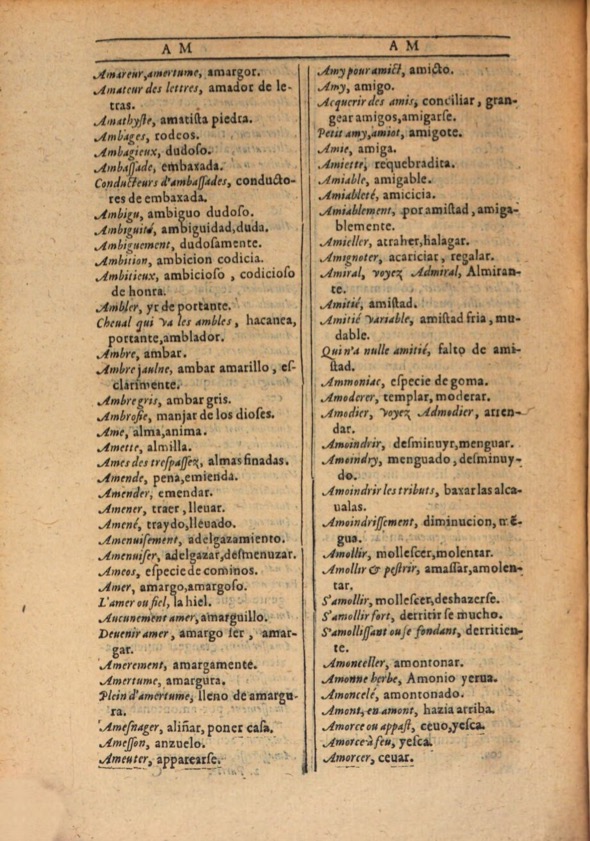 A M
Amareur, amertume, amargor.
Amateur des lettres, amador de le-
tras.
Amathyste, amatista piedra.
Ambages, rodeos.
Ambagieux, dudoso.
Ambassade, embaxada.
Conducteurs d'ambassades, conducto-
res de embaxada.
Ambigu, ambiguo dudoso.
Ambiguité, ambiguidad, duda.
Ambiguement, dudosamente.
Ambition, ambicion codicia.
Ambitieux, ambicioso, codicioso
de honra.
Ambler, yr de portante.
Cheual qui va les ambles, hacanea,
portante, amblador.
Ambre, ambar.
Ambre jaulne, ambar amarillo, es-
clarimente.
Ambre gris, ambar gris.
Ambrosie, manjar de los dioses.
Ame, alma, anima.
Amette, almilla.
Ames des trespassez, almas finadas.
Amende, pena, emienda.
Amender, emendar.
Amener, traer, lleuar.
Amené, traydo, lleuado.
Amenuisement, adelgazamiento.
Amenuiser, adelgazar, desmenuzar.
Ameos, especie de cominos.
Amer, amargo, amargoso.
L'amer ou fiel, la hiel.
Aucunement amer, amarguillo.
Deuenir amer, amargo ser, amar-
gar.
Amerement, amargamente.
Amertume, amargura.
Plein d'amertume, lleno de amargu-
ra.
Amesnager, aliñar, poner casa.
Amesson, anzuelo.
Ameuter, apparearse.
A M
Amy pour amict, amicto.
Amy, amigo.
Acquerir des amis, conciliar, gran-
gear amigos, amigarse.
Petit amy, amiot, amigote.
Amie, amiga.
Amiette, requebradita.
Amiable, amigable.
Amiableté, amicicia.
Amiablement, por amistad, amiga-
blemente.
Amieller, atraher, halagar.
Amignoter, acariciar, regalar.
Amiral, voyez Admiral, Almiran-
te.
Amitié, amistad.
Amitié variable, amistad fria, mu-
dable.
Qui n'a nulle amitié, falto de ami-
stad.
Ammoniac, especie de goma.
Amoderer, templar, moderar.
Amodier, voyez Admodier, arren-
dar.
Amoindrir, desminuyr, menguar.
Amoindry, menguado, desminuy-
do.
Amoindrir les tributs, baxar las alca-
ualas.
Amoindrissement, diminucion, mẽ
gua.
Amollir, mollescer, molentar.
Amollir & pestrir, amassar, amolen-
tar.
S'amollir, mollescer, deshazerse.
S'amollir fort, derritirse mucho.
S'amollissant ou se fondant, derritien-
te.
Amonceller, amontonar.
Amonne herbe, Amonio yerua.
Amoncelé, amontonado.
Amont, en amont, hazia arriba.
Amorce ou appast, ceuo, yesca.
Amorce à feu, yesca.
Amorcer, ceuar.